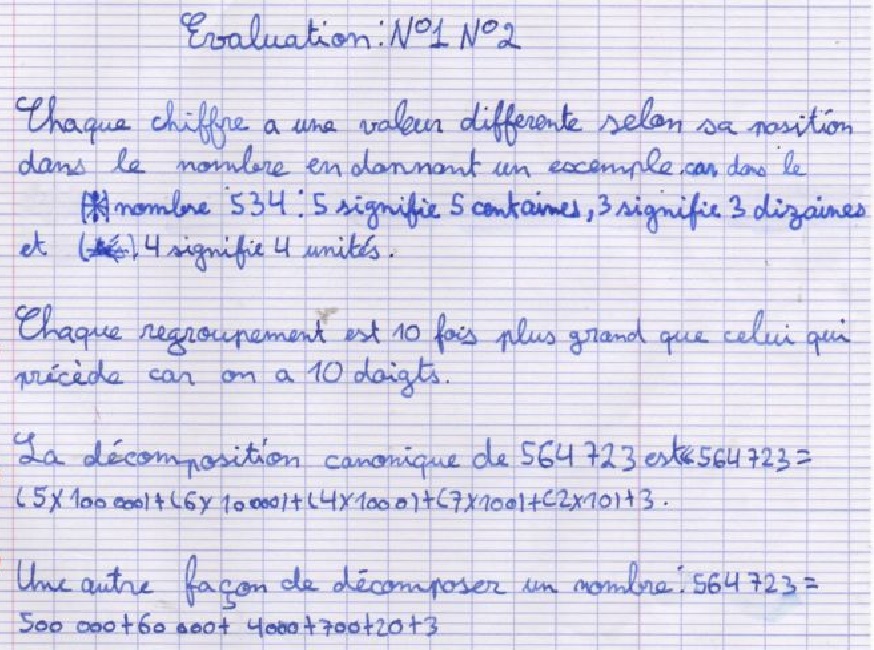 Evaluation : N°1 N°2
Chaque chiffre a une valeur differente selon sa position
dans le nombre en donnant un exemple car dans le
nombre 534 : 5 signifie 5 centaines, 3 signifie 3 dizaines
et 4 signifie 4 unités.
Chaque regroupement est 10 fois plus grand que celui qui
précède car on a 10 doigts.
La décomposition canonique de 564 723 est 564 723 =
(5X100 000)+(6X10 000)+(4X1000)+(7X100)+(2X10)+3.
Une autre façon de décomposer un nombre : 564 723 =
500 000+60 000+ 4000+700+20+3